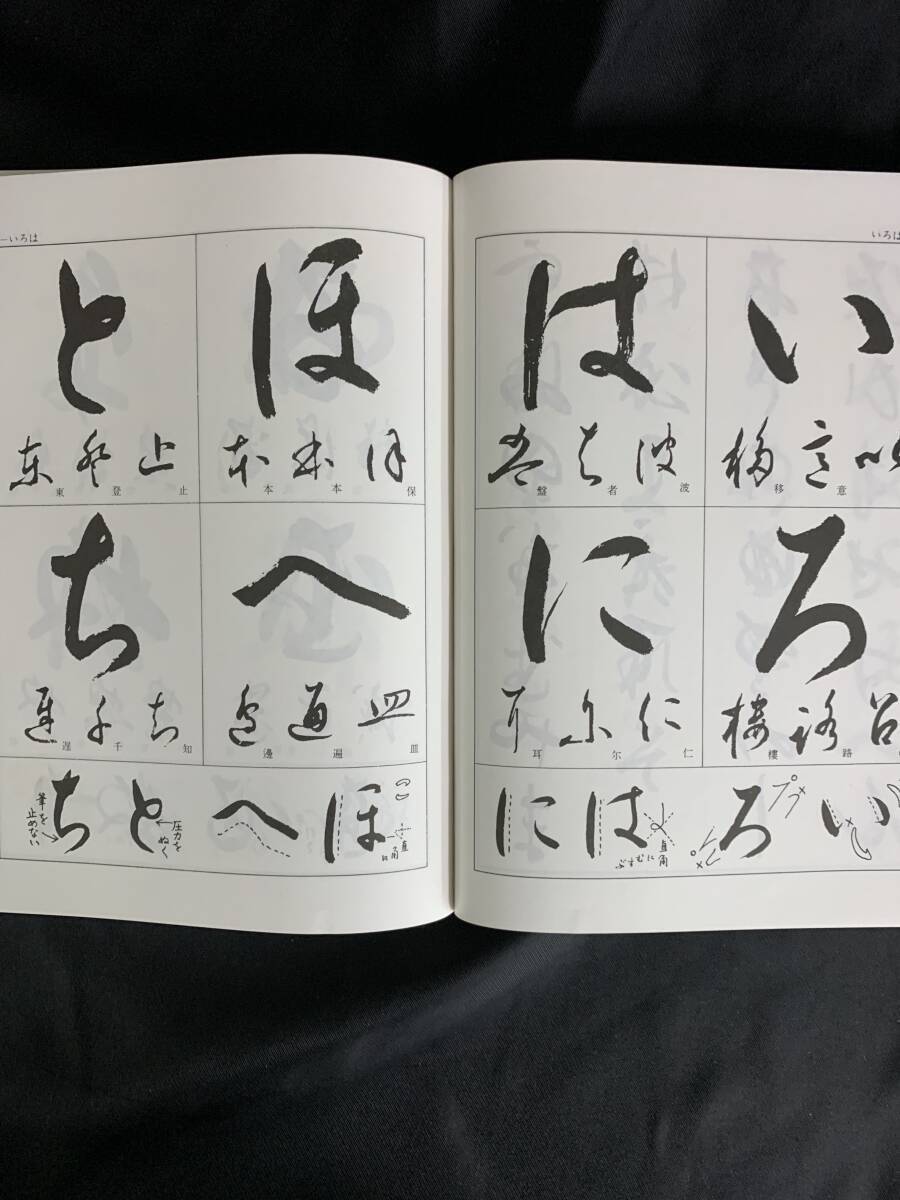 いろは
い
以意移
意移
ろ
呂路樓
路樓
は
波者盤
波者盤
に
仁尓耳
仁尓耳
い
ろ
は
直角
にむすぶ
に
—いろは
ほ
保本本
保本本
へ
皿遍邊
皿遍邊
と
止登東
止登東
ち
知千遅
知千遅
ほ
直角に
へ
と
圧力を
ぬく
ち
筆を
止めない